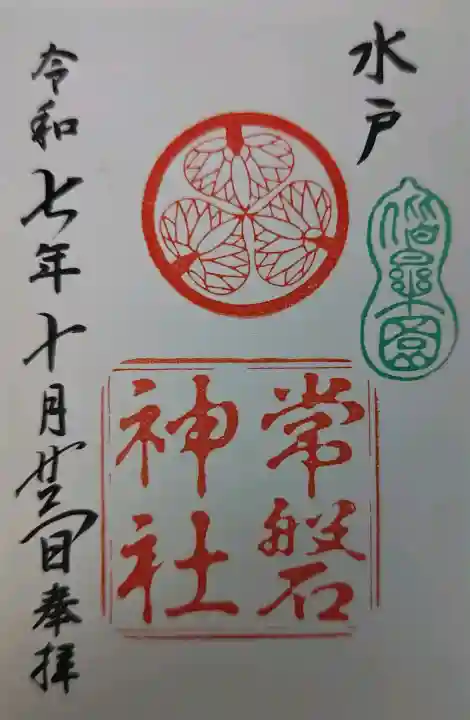 水戸
偕楽園
常磐
神社
令和七年十月廿 日奉拝